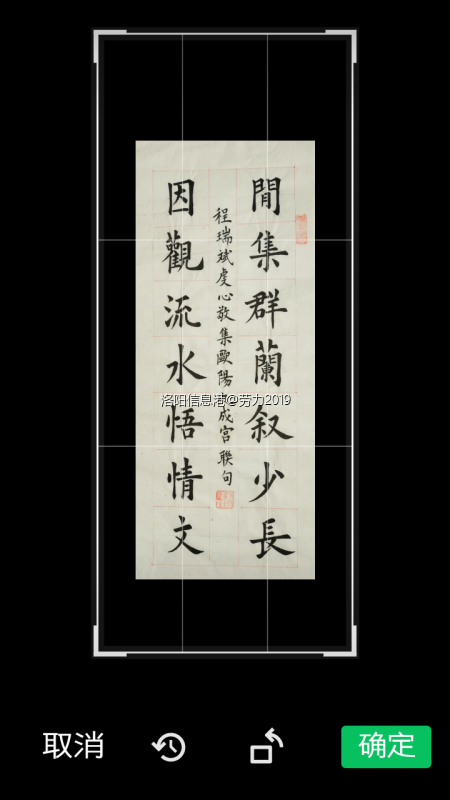 閒集群蘭叙少長
程瑞斌虔心敬集歐陽
成宫聯句
因觀流水悟情文
洛阳信息港@劳力2019
取消
确定